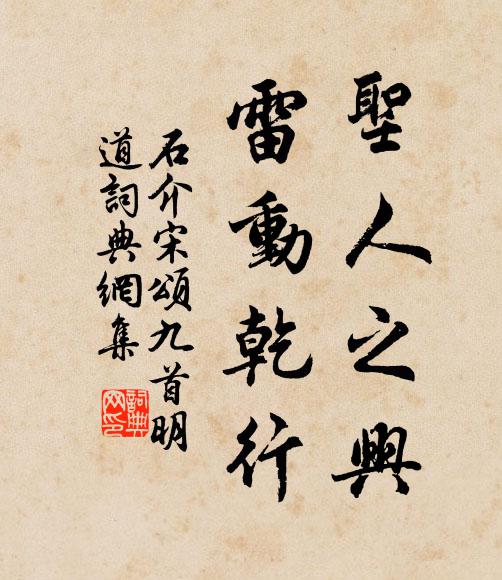 聖人之興
雷動乾行
石介宋頌九首明
道詞典網集
詞典
网印